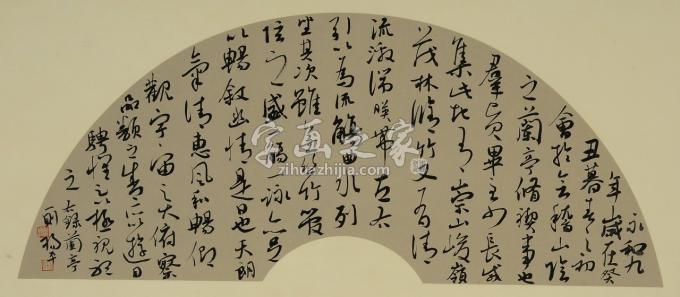 永和九
年岁在癸
丑暮春之初
会于会稽山阴
之兰亭脩禊事也
群贤毕至少长咸
集此地有崇山峻嶺
茂林脩竹又有清
流激湍暎带左右
引以為流觴曲水列
坐其次雖無丝竹管
弦之盛一觴一詠亦足
以暢叙幽情是日也天朗
氣清惠风和暢仰
觀宇宙之大俯察
品類之盛所以遊目
騁懷足以極視聽
之
录蘭亭
字画之家
zihuazhijia.com